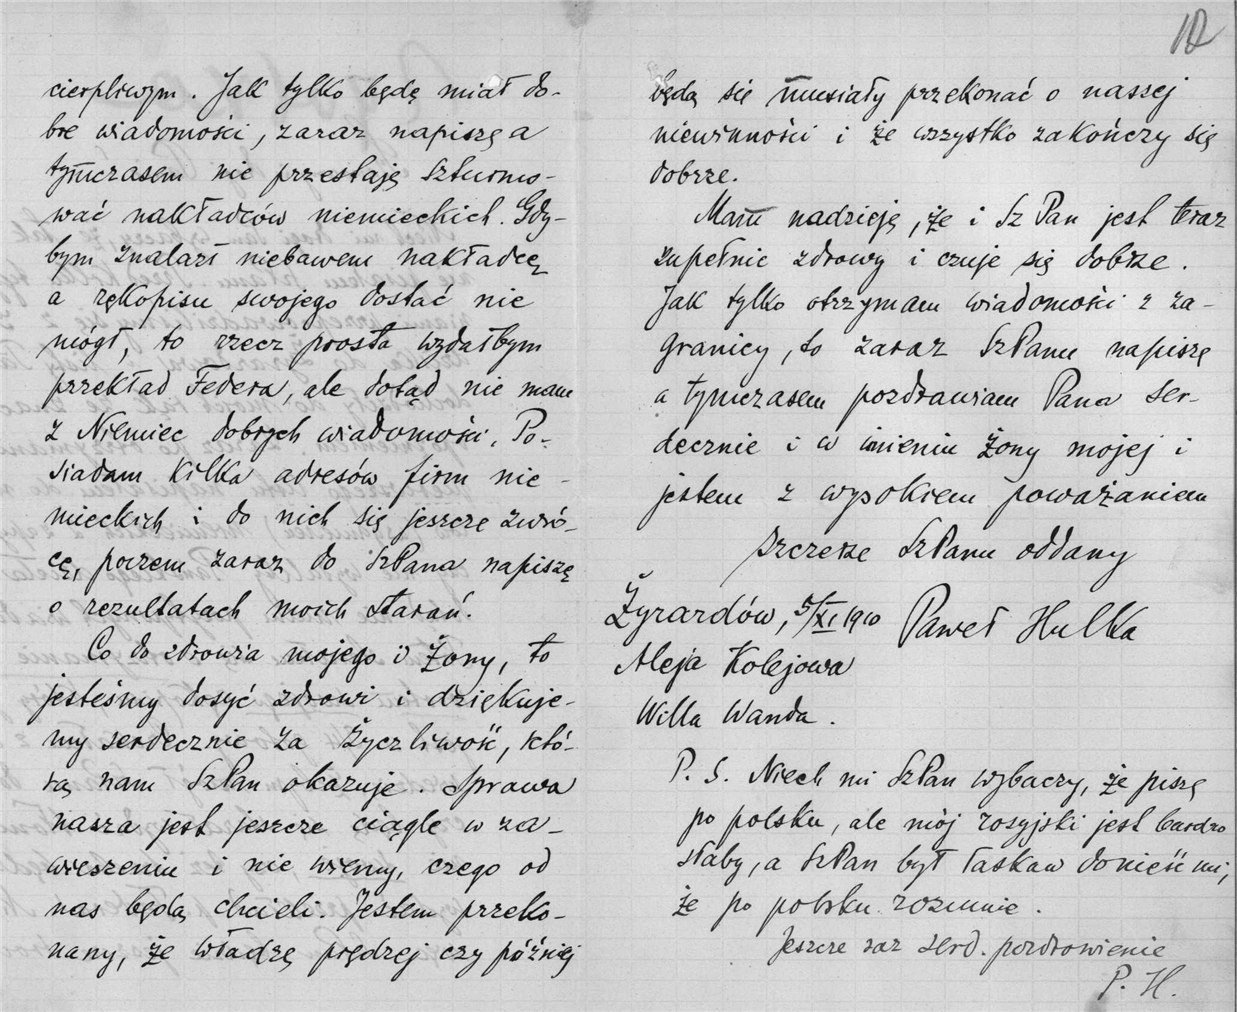 12
cierpliwym. Jak tylko będę miał do-
bre wiadomości, zaraz napiszę a
tymczasem nie przestaję szturmo-
wać nakładców niemieckich. Gdy-
bym znalazł niebawem nakładcę
a rękopisu swojego dostać nie
mógł, to rzecz prosta wydałbym
przekład Federa, ale dotąd nie mam
z Niemiec dobrych wiadomości. Po-
siadam kilka adresów firm nie-
mieckich i do nich się jeszcze zwró-
cę, poczem zaraz do SzPana napiszę
o rezultatach moich starań.
Co do zdrowia mojego i żony, to
jesteśmy dosyć zdrowi i dziękuje-
my serdecznie za życzliwość, któ-
rą nam SzPan okazuje. Sprawa
nasza jest jeszcze ciągle w za-
wieszeniu i nie wiemy, czego od
nas będą chcieli. Jestem przeko-
nany, że władzę prędzej czy później
będą się musiały przekonać o naszej
niewinności i że wszystko zakończy się
dobrze.
Mam nadzieję, że i Sz Pan jest teraz
zupełnie zdrowy i czuje się dobrze.
Jak tylko otrzymam wiadomości z za-
granicy, to zaraz SzPanu napiszę
a tymczasem pozdrawiam Pana ser-
decznie i w imieniu żony mojej i
jestem z wysokiem poważaniem
szczerze SzPanu oddany
Żyrardów, 5/XI 1910 Paweł Hulka
Aleja Kolejowa
Willa Wanda.
P. S. Niech mi SzPan wybaczy, że piszę
po polsku, ale mój rosyjski jest bardzo
słaby, a SzPan był łaskaw donieść mi,
że po polsku rozumie.
Jeszcze raz serd. pozdrowienie
P. H.